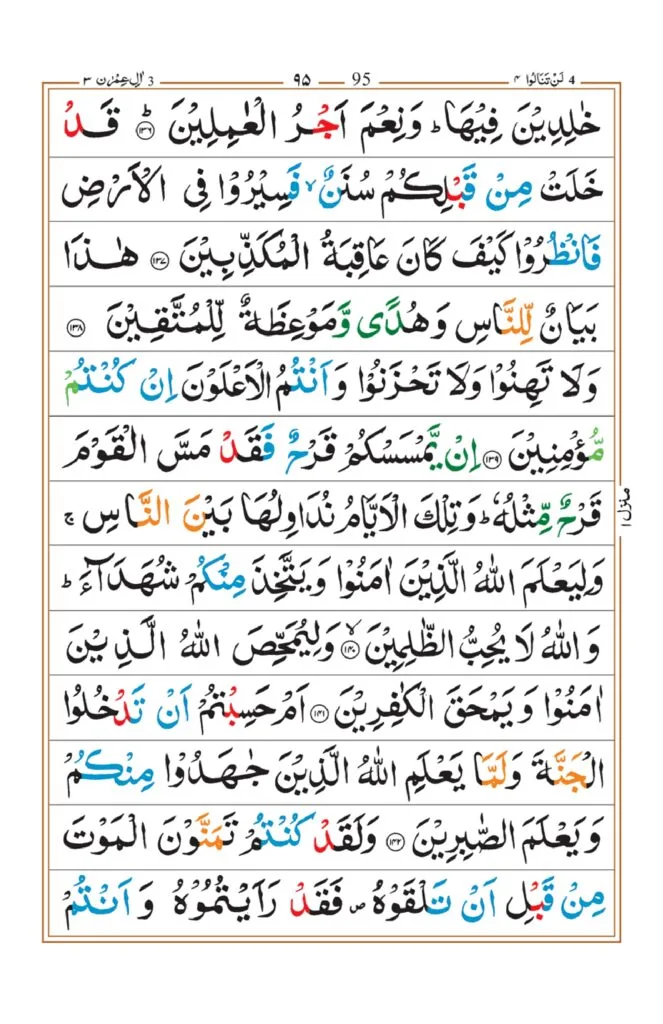 4 لَنْ تَنَالُوا ۴ 95 ۹۵ 3 اٰلِ عِمْرٰن ۳
خٰلِدِيْنَ فِيْهَا ؕ وَنِعْمَ اَجْرُ الْعٰمِلِيْنَ ؕ ۱۳۶ قَدْ
خَلَتْ مِنْ قَبْلِكُمْ سُنَنٌ ۙ فَسِيْرُوْا فِى الْاَرْضِ
فَانْظُرُوْا كَيْفَ كَانَ عَاقِبَةُ الْمُكَذِّبِيْنَ ۱۳۷ هٰذَا
بَيَانٌ لِّلنَّاسِ وَهُدًى وَّمَوْعِظَةٌ لِّلْمُتَّقِيْنَ ۱۳۸
وَلَا تَهِنُوْا وَلَا تَحْزَنُوْا وَاَنْتُمُ الْاَعْلَوْنَ اِنْ كُنْتُمْ
مُّؤْمِنِيْنَ ۱۳۹ اِنْ يَّمْسَسْكُمْ قَرْحٌ فَقَدْ مَسَّ الْقَوْمَ
قَرْحٌ مِّثْلُهٗ ؕ وَتِلْكَ الْاَيَّامُ نُدَاوِلُهَا بَيْنَ النَّاسِ ۚ
وَلِيَعْلَمَ اللّٰهُ الَّذِيْنَ اٰمَنُوْا وَيَتَّخِذَ مِنْكُمْ شُهَدَآءَ ؕ
وَاللّٰهُ لَا يُحِبُّ الظّٰلِمِيْنَ ۙ ۱۴۰ وَلِيُمَحِّصَ اللّٰهُ الَّذِيْنَ
اٰمَنُوْا وَيَمْحَقَ الْكٰفِرِيْنَ ۱۴۱ اَمْ حَسِبْتُمْ اَنْ تَدْخُلُوا
الْجَنَّةَ وَلَمَّا يَعْلَمِ اللّٰهُ الَّذِيْنَ جٰهَدُوْا مِنْكُمْ
وَيَعْلَمَ الصّٰبِرِيْنَ ۱۴۲ وَلَقَدْ كُنْتُمْ تَمَنَّوْنَ الْمَوْتَ
مِنْ قَبْلِ اَنْ تَلْقَوْهُ ۪ فَقَدْ رَاَيْتُمُوْهُ وَاَنْتُمْ
منزل ۱